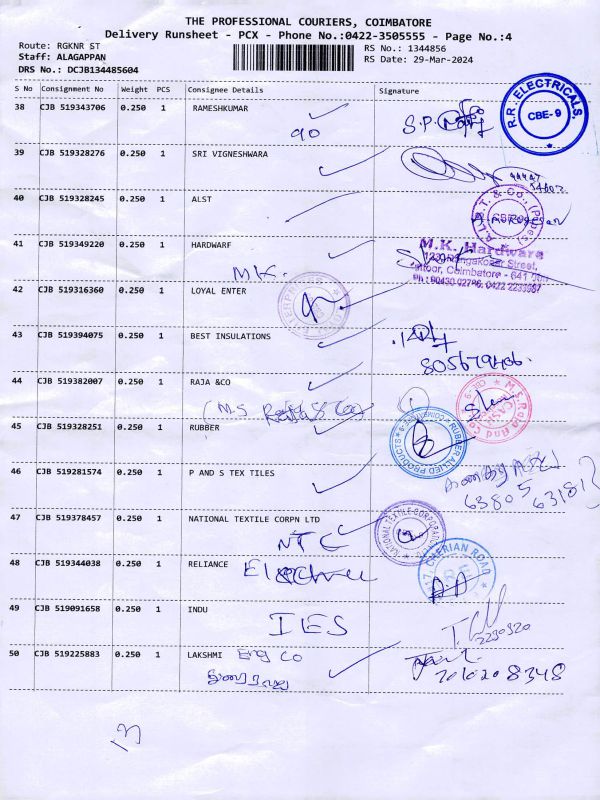 THE PROFESSIONAL COURIERS, COIMBATORE
Delivery Runsheet - PCX - Phone No.:0422-3505555 - Page No.:4
Route: RGKNR ST
RS No.: 1344856
Staff: ALAGAPPAN
RS Date: 29-Mar-2024
DRS No.: DCJB134485604
S No Consignment No Weight PCS Consignee Details Signature
38 CJB 519343706 0.250 1 RAMESHKUMAR
90 S.P.
R.R. ELECTRICALS, CBE-9
39 CJB 519328276 0.250 1 SRI VIGNESHWARA
40 CJB 519328245 0.250 1 ALST
41 CJB 519349220 0.250 1 HARDWARF
M.K.
M.K. Hardware
Coimbatore - 641
42 CJB 519316360 0.250 1 LOYAL ENTER
43 CJB 519394075 0.250 1 BEST INSULATIONS
44 CJB 519382007 0.250 1 RAJA &CO
(M.S Raja & Co)
M.S. Raja And Co
45 CJB 519328251 0.250 1 RUBBER
RUBBER ALLIED PRODUCTS
46 CJB 519281574 0.250 1 P AND S TEX TILES
63805
47 CJB 519378457 0.250 1 NATIONAL TEXTILE CORPN LTD
NTC
NATIONAL TEXTILE CORPORATION
48 CJB 519344038 0.250 1 RELIANCE
CHERIAN ROAD
49 CJB 519091658 0.250 1 INDU
IES
2230320
50 CJB 519225883 0.250 1 LAKSHMI Eng Co
13